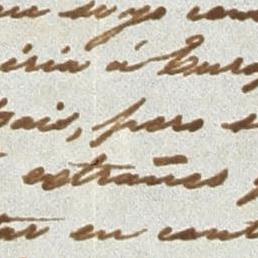 suyo
iria á Euro
pais, pero s
extraños
tar en cont